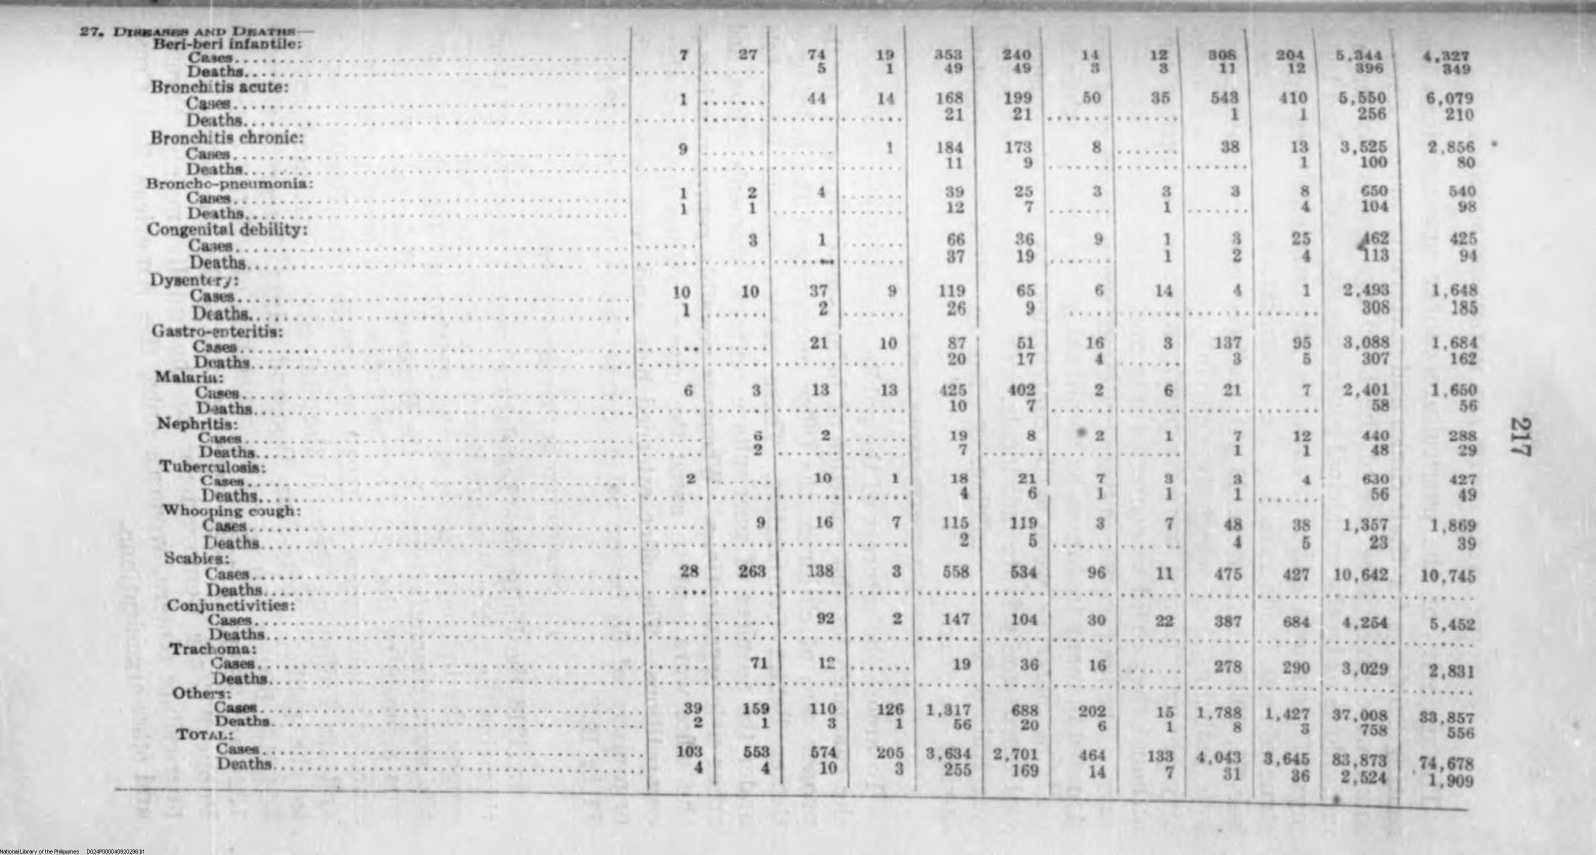 27. DISEASES AND DEATHS—
Beri-beri infantile:
Cases 7 27 74 19 353 240 14 12 308 204 5,344 4,327
Deaths 5 1 49 49 3 3 11 12 396 349
Bronchitis acute:
Cases 1 44 14 168 199 50 35 543 410 5,550 6,079
Deaths 21 21 1 1 256 210
Bronchitis chronic:
Cases 9 1 184 173 8 38 13 3,525 2,856
Deaths 11 9 1 100 80
Broncho-pneumonia:
Cases 1 2 4 39 25 3 3 3 8 650 540
Deaths 1 1 12 7 1 4 104 98
Congenital debility:
Cases 3 1 66 36 9 1 3 25 462 425
Deaths 37 19 1 2 4 113 94
Dysentery:
Cases 10 10 37 9 119 65 6 14 4 1 2,493 1,648
Deaths 1 2 26 9 308 185
Gastro-enteritis:
Cases 21 10 87 51 16 3 137 95 3,088 1,684
Deaths 20 17 4 3 5 307 162
Malaria:
Cases 6 3 13 13 425 402 2 6 21 7 2,401 1,650
Deaths 10 7 58 56
Nephritis:
Cases 6 2 19 8 2 1 7 12 440 288
Deaths 2 7 1 1 48 29
Tuberculosis:
Cases 2 10 1 18 21 7 3 3 4 630 427
Deaths 4 6 1 1 1 56 49
Whooping cough:
Cases 9 16 7 115 119 3 7 48 38 1,357 1,869
Deaths 2 5 4 5 23 39
Scabies:
Cases 28 263 138 3 558 534 96 11 475 427 10,642 10,745
Deaths
Conjunctivities:
Cases 92 2 147 104 30 22 387 684 4,254 5,452
Deaths
Trachoma:
Cases 71 12 19 36 16 278 290 3,029 2,831
Deaths
Others:
Cases 39 159 110 126 1,317 688 202 15 1,788 1,427 37,008 33,857
Deaths 2 1 3 1 56 20 6 1 8 3 758 556
TOTAL:
Cases 103 553 574 205 3,634 2,701 464 133 4,043 3,645 83,873 74,678
Deaths 4 4 10 3 255 169 14 7 31 36 2,524 1,909
217
National Library of the Philippines